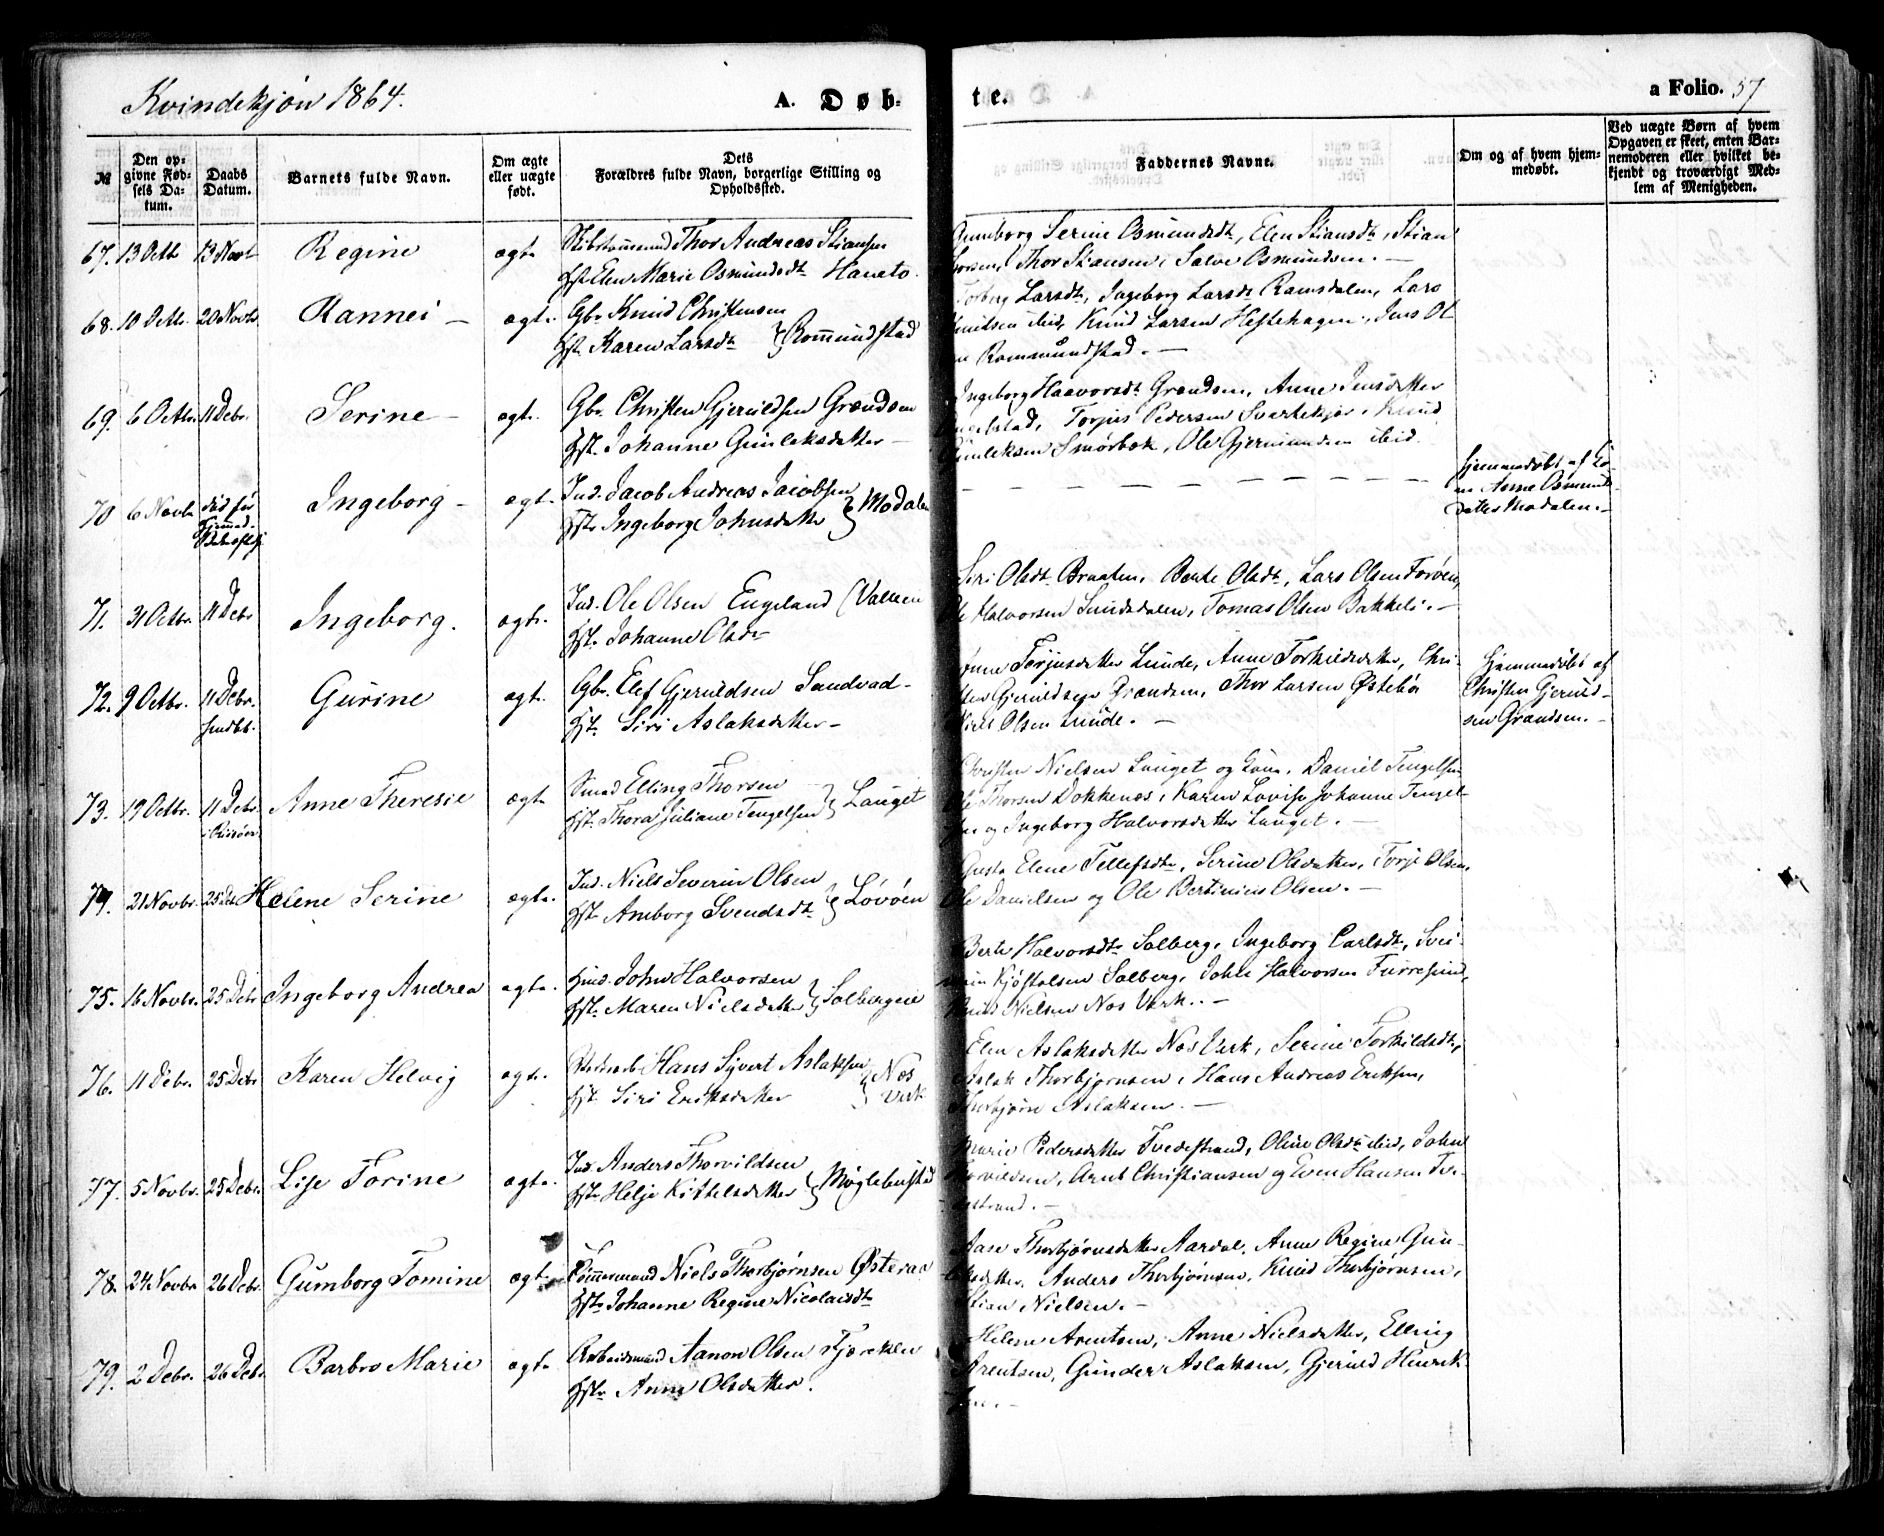 Kvindekjøn 1864.
A. Døb-
te.
a Folio. 57
№
Den op-
givne Fød-
sels Da-
tum.
Daabs
Datum.
Barnets fulde Navn.
Om ægte
eller uægte
født.
Dets
Forældres fulde Navn, borgerlige Stilling og
Opholdssted.
Faddernes Navne.
Om og af hvem hjem-
medøbt.
Ved uægte Børn af hvem
Opgaven er skeet, enten Bar-
nemoderen eller hvilket be-
kjendt og troværdigt Med-
lem af Menigheden.
67. 13 Octb. 13 Novb. Regine ægt. Thor Andreas Stiansen
Hst. Elen Marie Osmundsdt. Hanato.
Gunborg Serine Osmundsdt., Elen Stiansdt., Stian
Thor Stiansen, Salve Osmundsen. —
68. 10 Octb. 20 Novb. Rannei — ægt. Gbr. Knud Christensen
Hst. Karen Larsdt. } Rommundstad
Torberg Larsdt., Ingeborg Larsdt. Ramsdalen, Lars
Knudsen ibid, Knud Larsen Heftehagen, Jens Ol
Rommundstad. —
69. 6 Octbr. 11 Debr. Serine — ægt. Gbr. Christen Gjeruldsen Grændsen
Hst. Johanne Gunleksdatter —
Ingeborg Haavorsdt. Grændsen, Anne Jensdatter
Torjus Pedersen Svartekjær, Knud
Gunleksen Smørbek, Ole Gjermundsen ibid.
70 6 Novb. død før
Ingeborg — ægt. Ind. Jacob Andreas Jacobsen
Hst. Ingeborg Johnsdatter } Modalen
— — — — — — —
hjemmedøbt af
Anne Osmunds-
datter Modalen. —
71. 31 Octbr. 11 Debr. Ingeborg. ægt. Ind. Ole Olsen Engeland
Hst. Johanne Olsdt.
Siri Olsdt. Braaten, Berte Olsdt., Lars Olsen Forøen,
Ole Halvorsen Sundsdalen, Tomas Olsen Bakkeli. —
72. 9 Octbr. 11 Debr. Gurine ægt. Gbr. Elef Gjeruldsen Sandvad —
Hst. Siri Aslaksdatter —
Anne Torjusdatter Lunde, Anne Torkildsdatter, Chri-
sten Gjeruldsen Grændsen, Thor Larsen Østebø
Niels Olsen Lunde. —
hjemmedøbt af
Christen Gjeruld-
sen Grændsen. —
73. 19 Octbr. 11 Debr. Anne Theresie ægt. Smed Elling Thorsen
Hst. Thora Juliane Tengelsen } Lauget
Christen Nielsen Lauget og Daniel Tengelsen
Ole Thorsen Dokkenæs, Karen Lovise Johanne Tengel-
sen og Ingeborg Halvorsdatter Lauget. —
74. 21 Novbr. 25 Deb. Helene Serine ægt. Ind. Niels Severin Olsen
Hst. Amborg Svendsdt. } Løvøen
Elene Tellefsdt., Serine Olsdatter, Torje Olsen,
Ole Danielsen og Ole Bertinius Olsen. —
75. 16 Novbr. 25 Debr. Ingeborg Andrea ægt. John Halvorsen
Hst. Maren Nielsdatter } Solbergeie
Berte Halvorsdt. Solberg, Ingeborg Carlsdt.,
Kjøstolsen Solberg, John Halvorsen
Knud Nielsen Næs Værk. —
76. 11 Debr. 25 Debr. Karen Helvig ægt. Hans Syvert Aslaksen
Hst. Siri Eriksdatter } Næs
Værk
Elen Aslaksdatter Næs Værk, Serine Torkildsdt.,
Aslak Thorbjørnsen, Hans Andreas Eriksen,
Thorbjørn Aslaksen. —
77. 5 Novbr. 25 Debr. Lise Torine ægt. Ind. Anders Thorvildsen
Hst. Helje Kittelsdatter } Møglebustad
Marie Pedersdatter Tvedestrand, Oline Olsdt. ibid, John
Thorvildsen, Arnt Christiansen og Even Hansen Tve-
destrand. —
78. 24 Novbr. 26 Debr. Gumborg Tomine ægt. Tømmermand Niels Thorbjørnsen Østeraa
Hst. Johanne Regine Nicolaisdt.
Aase Thorbjørnsdatter Aardal, Anne Regine Gun-
Anders Thorbjørnsen, Knud Thorbjørnsen,
Stian Nielsen. —
79. 2 Debr. 26 Debr. Barbro Marie ægt. Arbeidsmand Aanon Olsen Fjæreklev
Hst. Anne Olsdatter.
Helene Arentsen, Anne Nielsdatter, Elling
Arentsen, Gunder Aslaksen, Gjeruld Henrik-
sen. —